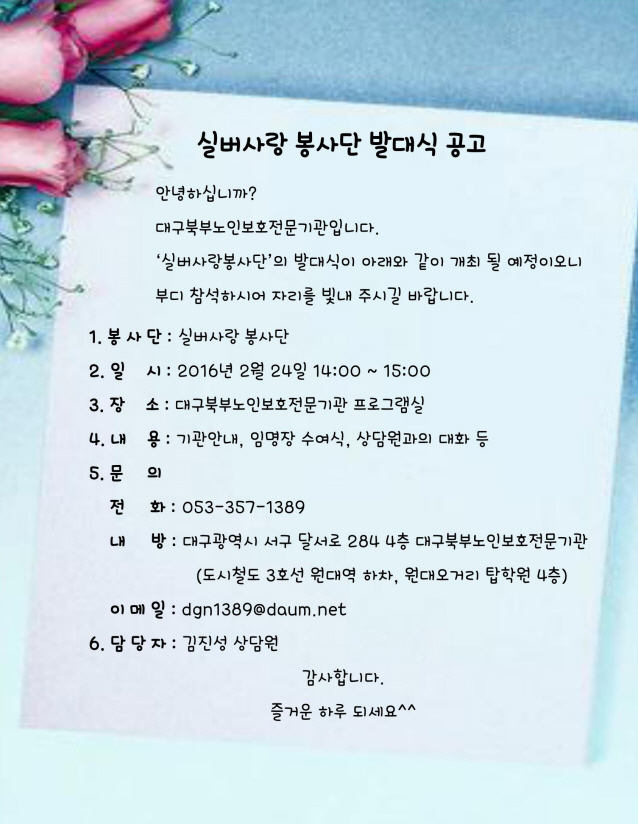 실버사랑 봉사단 발대식 공고
안녕하십니까?
대구북부노인보호전문기관입니다.
‘실버사랑봉사단’의 발대식이 아래와 같이 개최 될 예정이오니
부디 참석하시어 자리를 빛내 주시길 바랍니다.
1. 봉 사 단 : 실버사랑 봉사단
2. 일 시 : 2016년 2월 24일 14:00 ~ 15:00
3. 장 소 : 대구북부노인보호전문기관 프로그램실
4. 내 용 : 기관안내, 임명장 수여식, 상담원과의 대화 등
5. 문 의
전 화 : 053-357-1389
내 방 : 대구광역시 서구 달서로 284 4층 대구북부노인보호전문기관
(도시철도 3호선 원대역 하차, 원대오거리 탑학원 4층)
이 메 일 : dgn1389@daum.net
6. 담 당 자 : 김진성 상담원
감사합니다.
즐거운 하루 되세요^^